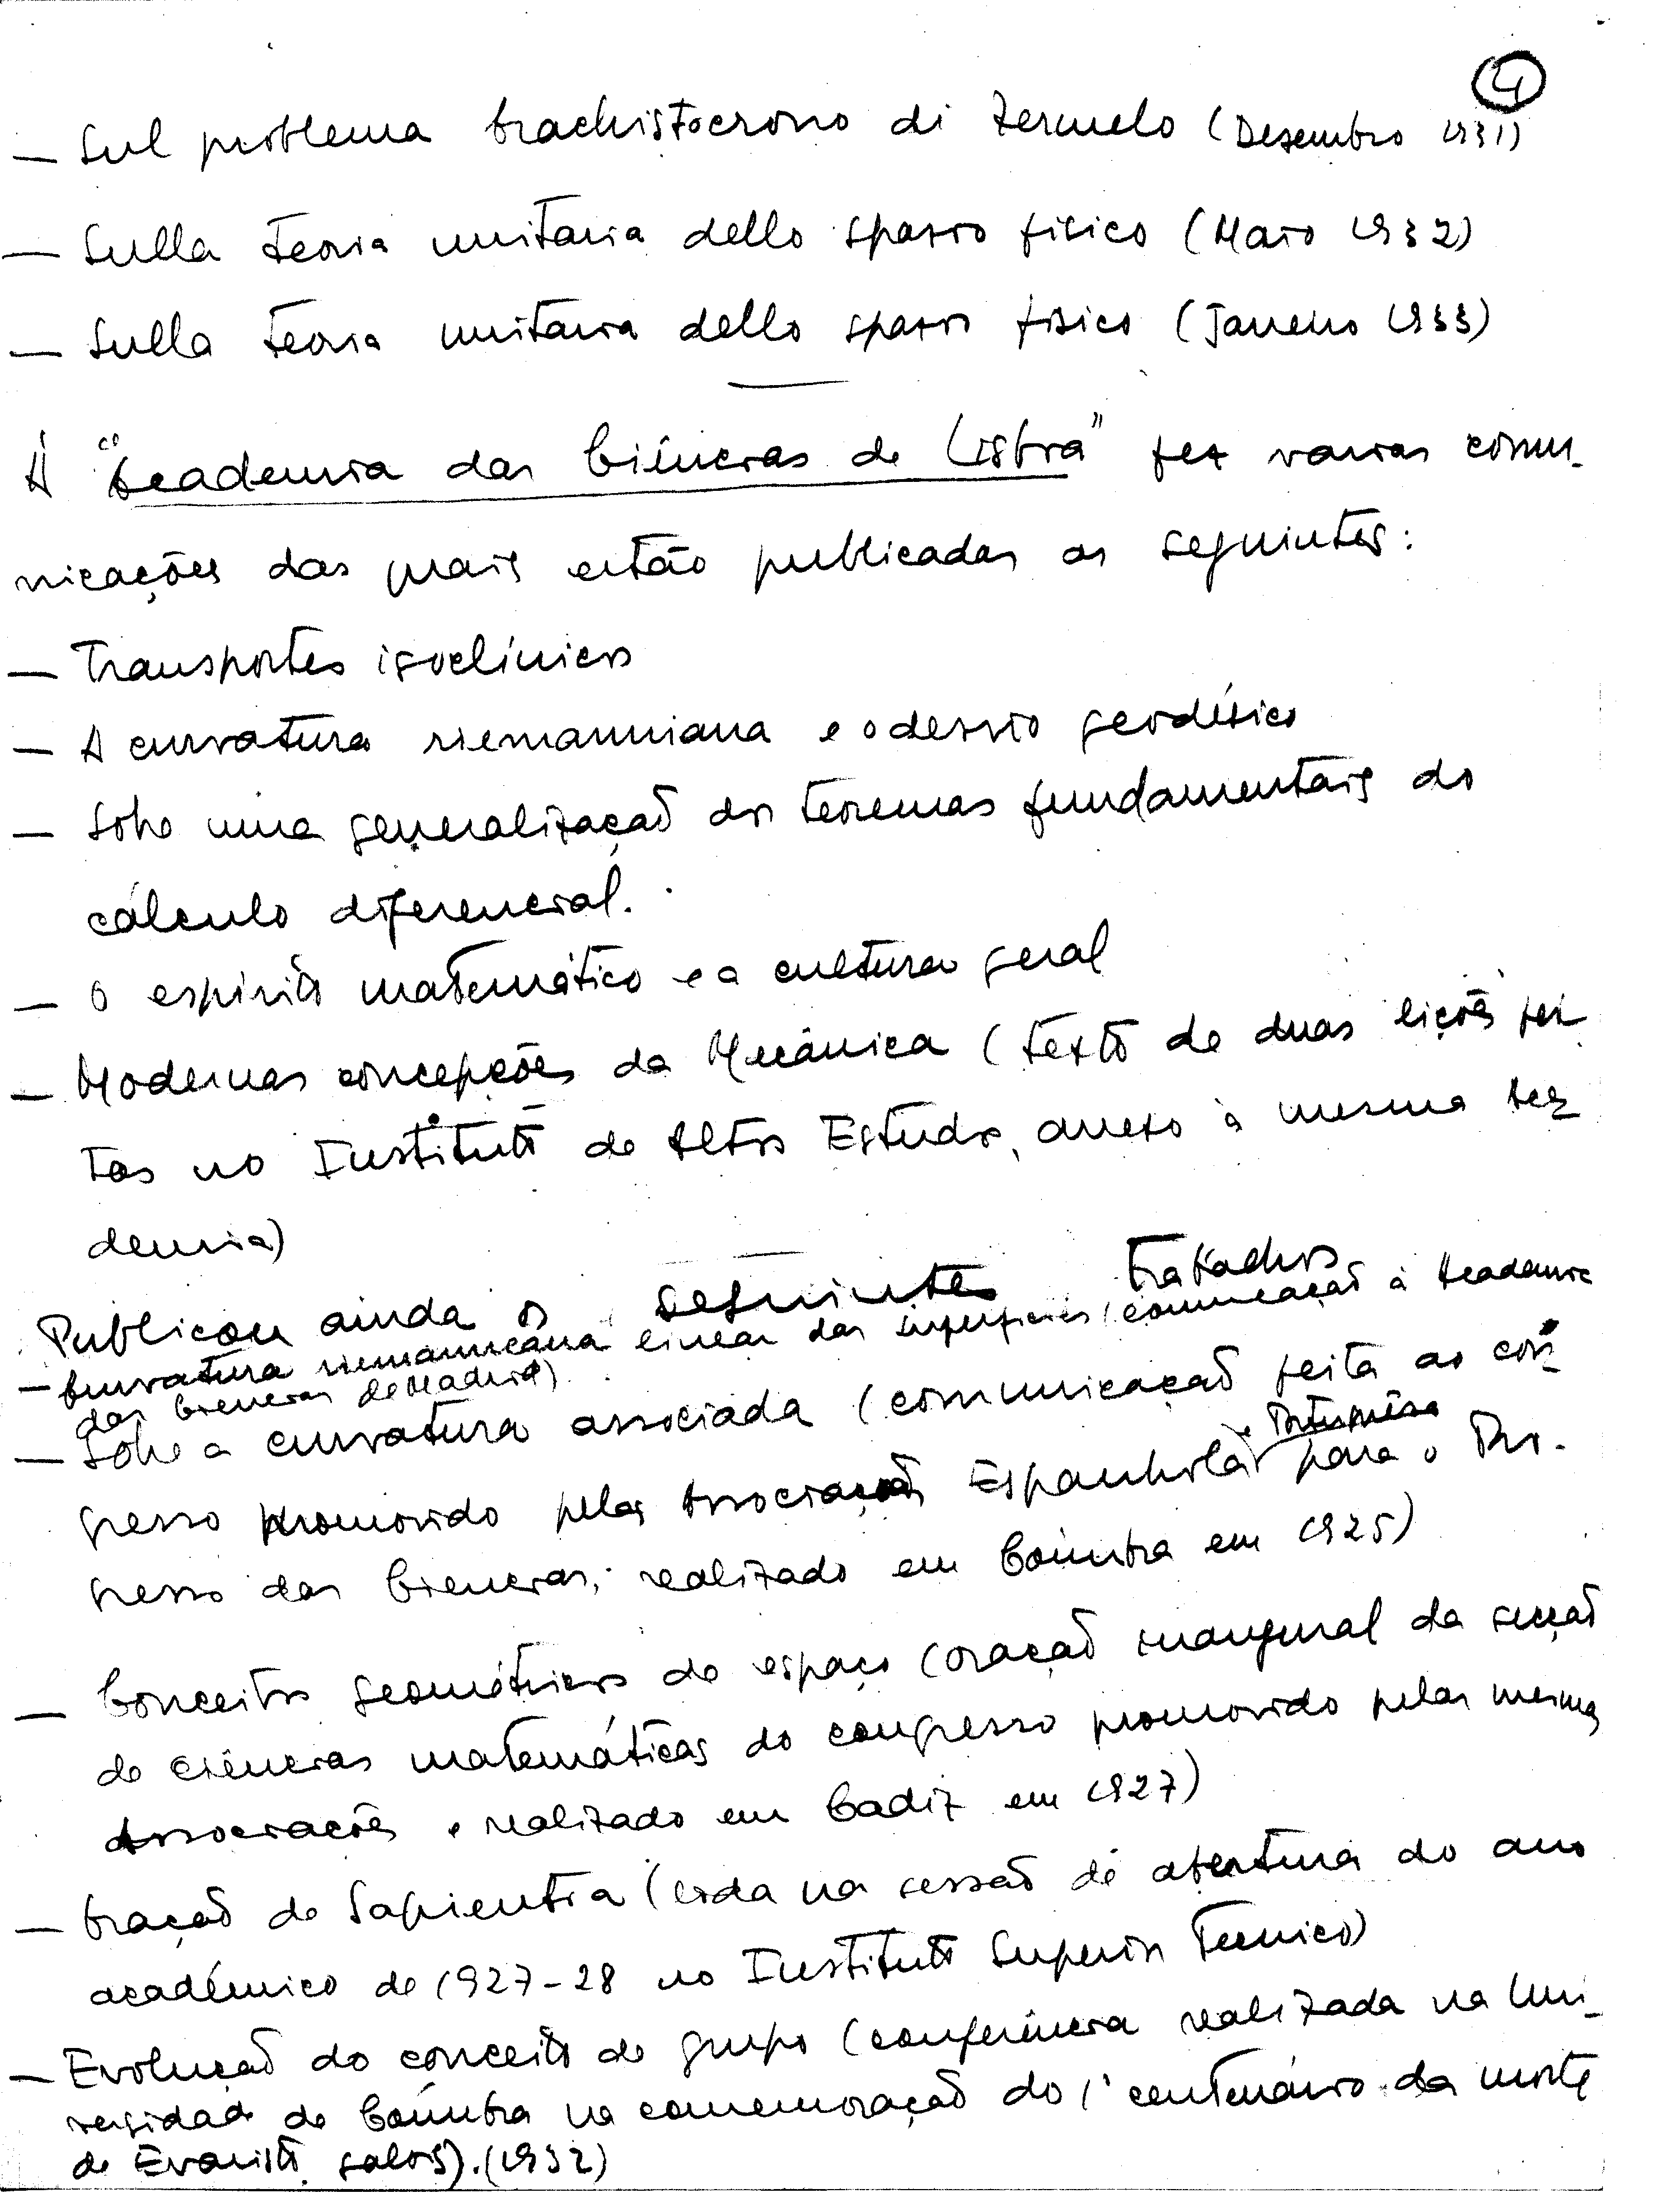 4
— Sul problema brachistocrono di Zermelo (Dezembro 1931)
— Sulla teoria unitaria dello spazio fisico (Maio 1932)
— Sulla teoria unitaria dello spazio fisico (Janeiro 1933)
À "Academia das Ciências de Lisboa" fez varias comu-
nicações das quais estão publicadas as seguintes:
— Transportes isoclínicos
— A curvatura riemanniana e o desvio geodésico
— Sobre uma generalização dos teoremas fundamentais do
cálculo diferencial.
— O espirito matemático e a cultura geral
— Modernas concepções da Mecânica (texto de duas lições fei-
tas no Instituto de Altos Estudos, anexo à mesma Aca-
demia)
Publicou ainda os seguintes trabalhos
— Curvatura riemanniana linear das superficies (comunicação à Academia
das Ciencias de Madrid)
— Sobre a curvatura associada (comunicação feita ao con-
gresso promovido pelas Associações Espanhola e Portuguêsa para o Pro-
gresso das Ciencias, realizado em Coimbra em 1925)
— Conceitos geométricos de espaço (oração inaugural da secção
de ciências matemáticas do congresso promovido pelas mesmas
Associações e realizado em Cadiz em 1927)
— Oração de Sapientia (lida na sessão de abertura do ano
académico de 1927-28 no Instituto Superior Tecnico)
— Evolução do conceito de grupo (conferência realizada na Uni-
versidade de Coimbra na comemoração do 1º centenário da morte
de Evaristo Galois). (1932)